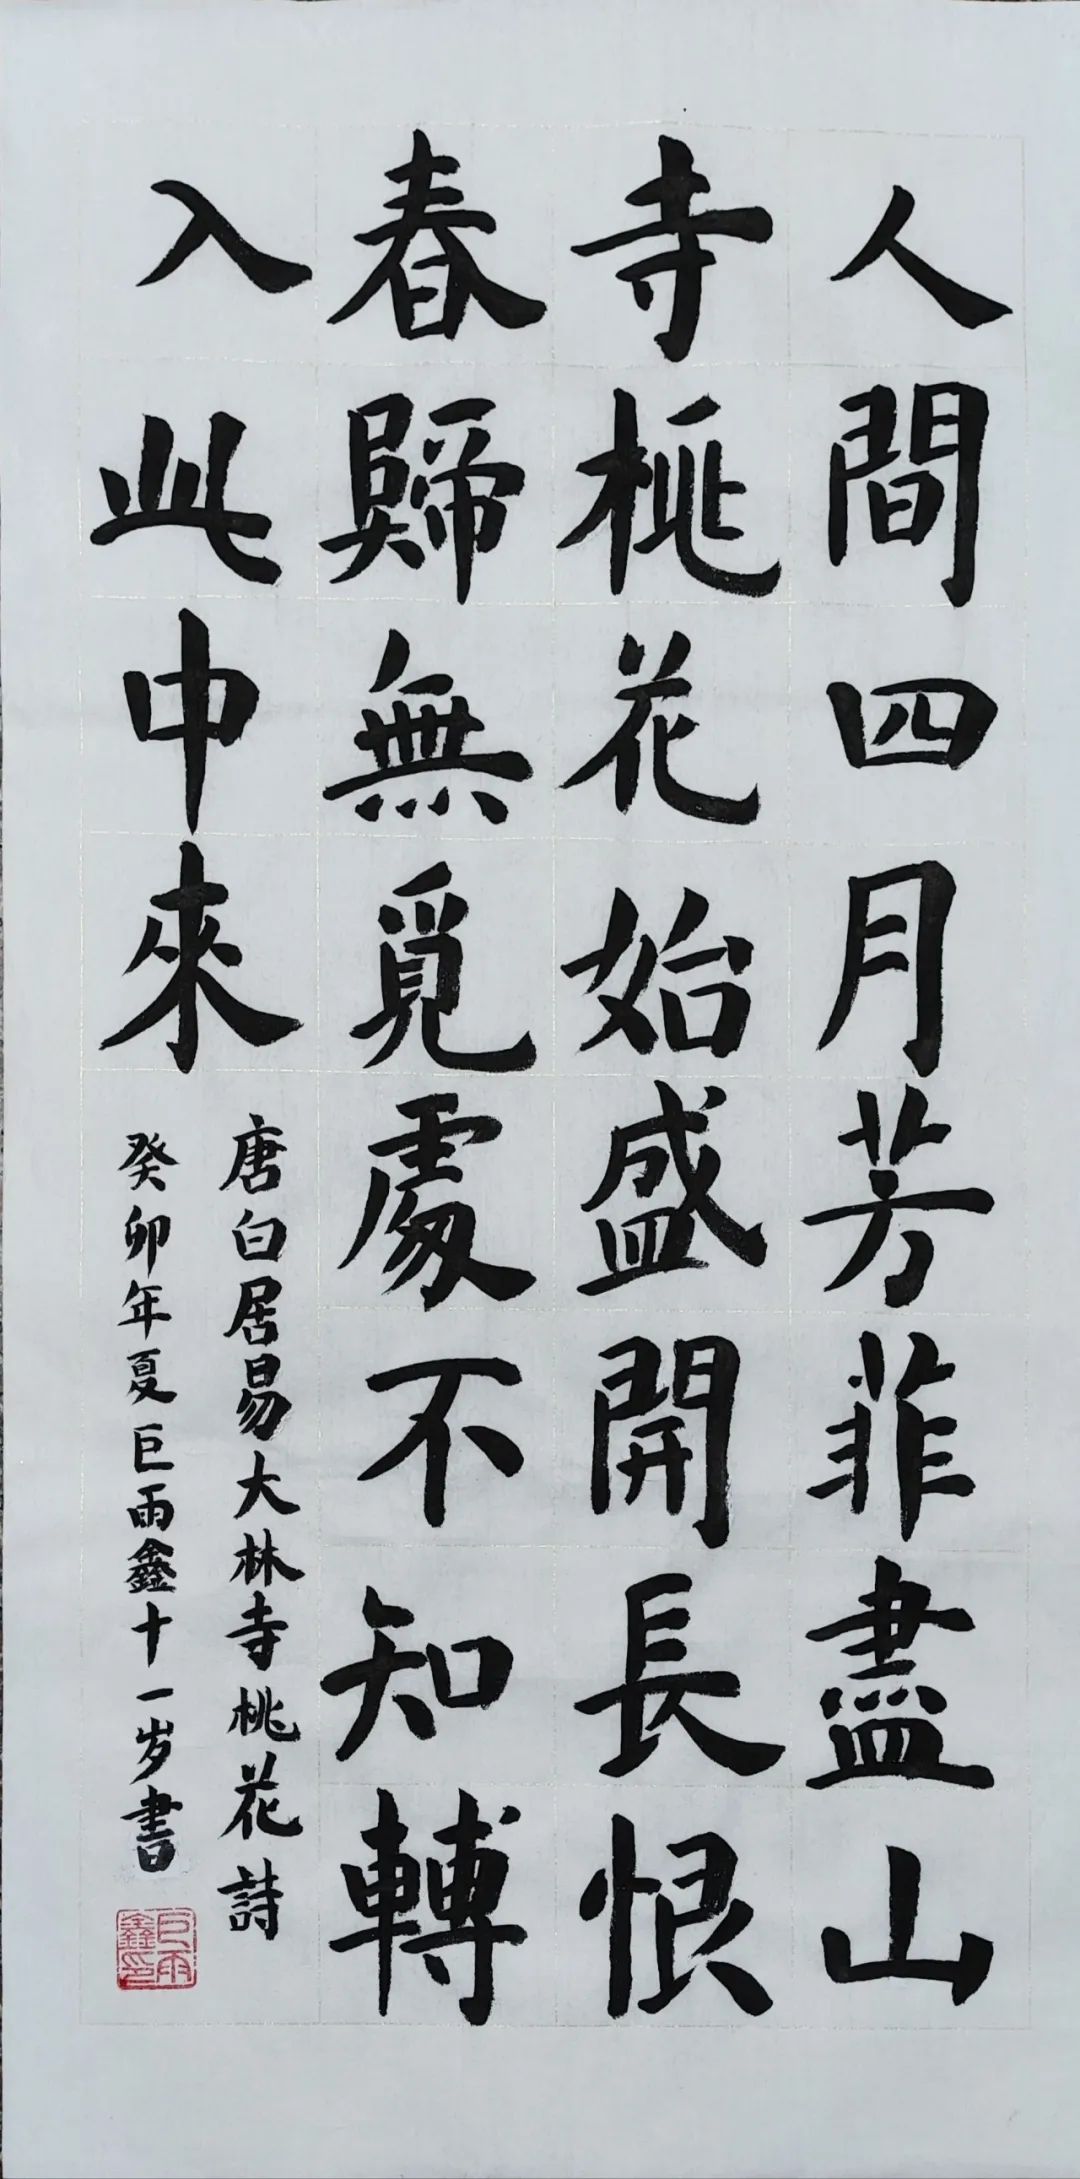 人間四月芳菲盡山
寺桃花始盛開長恨
春歸無覓處不知轉
入此中來
唐白居易大林寺桃花詩
癸卯年夏巨雨鑫十一岁書
巨雨鑫印